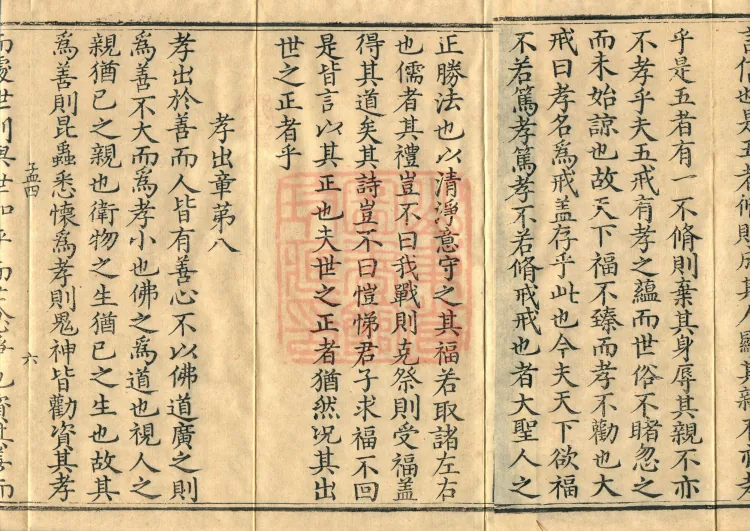 信也是五者脩則成其人顯其親不亦孝
乎是五者有一不脩則棄其身辱其親不亦
不孝乎夫五戒有孝之蘊而世俗不睹忽之
而未始諒也故天下福不臻而孝不勸也大
戒曰孝名爲戒盖存乎此也今夫天下欲福
不若篤孝篤孝不若脩戒戒也者大聖人之
正勝法也以清淨意守之其福若取諸左右
也儒者其禮豈不曰我戰則克祭則受福盖
得其道矣其詩豈不曰愷悌君子求福不回
是皆言以其正也夫世之正者猶然况其出
世之正者乎
孝出章第八
孝出於善而人皆有善心不以佛道廣之則
爲善不大而爲孝小也佛之爲道也視人之
親猶己之親也衛物之生猶己之生也故其
爲善則昆蟲悉懷爲孝則鬼神皆勸資其孝
孟四 六
而處世則與世和平而亡忿爭也資其善而